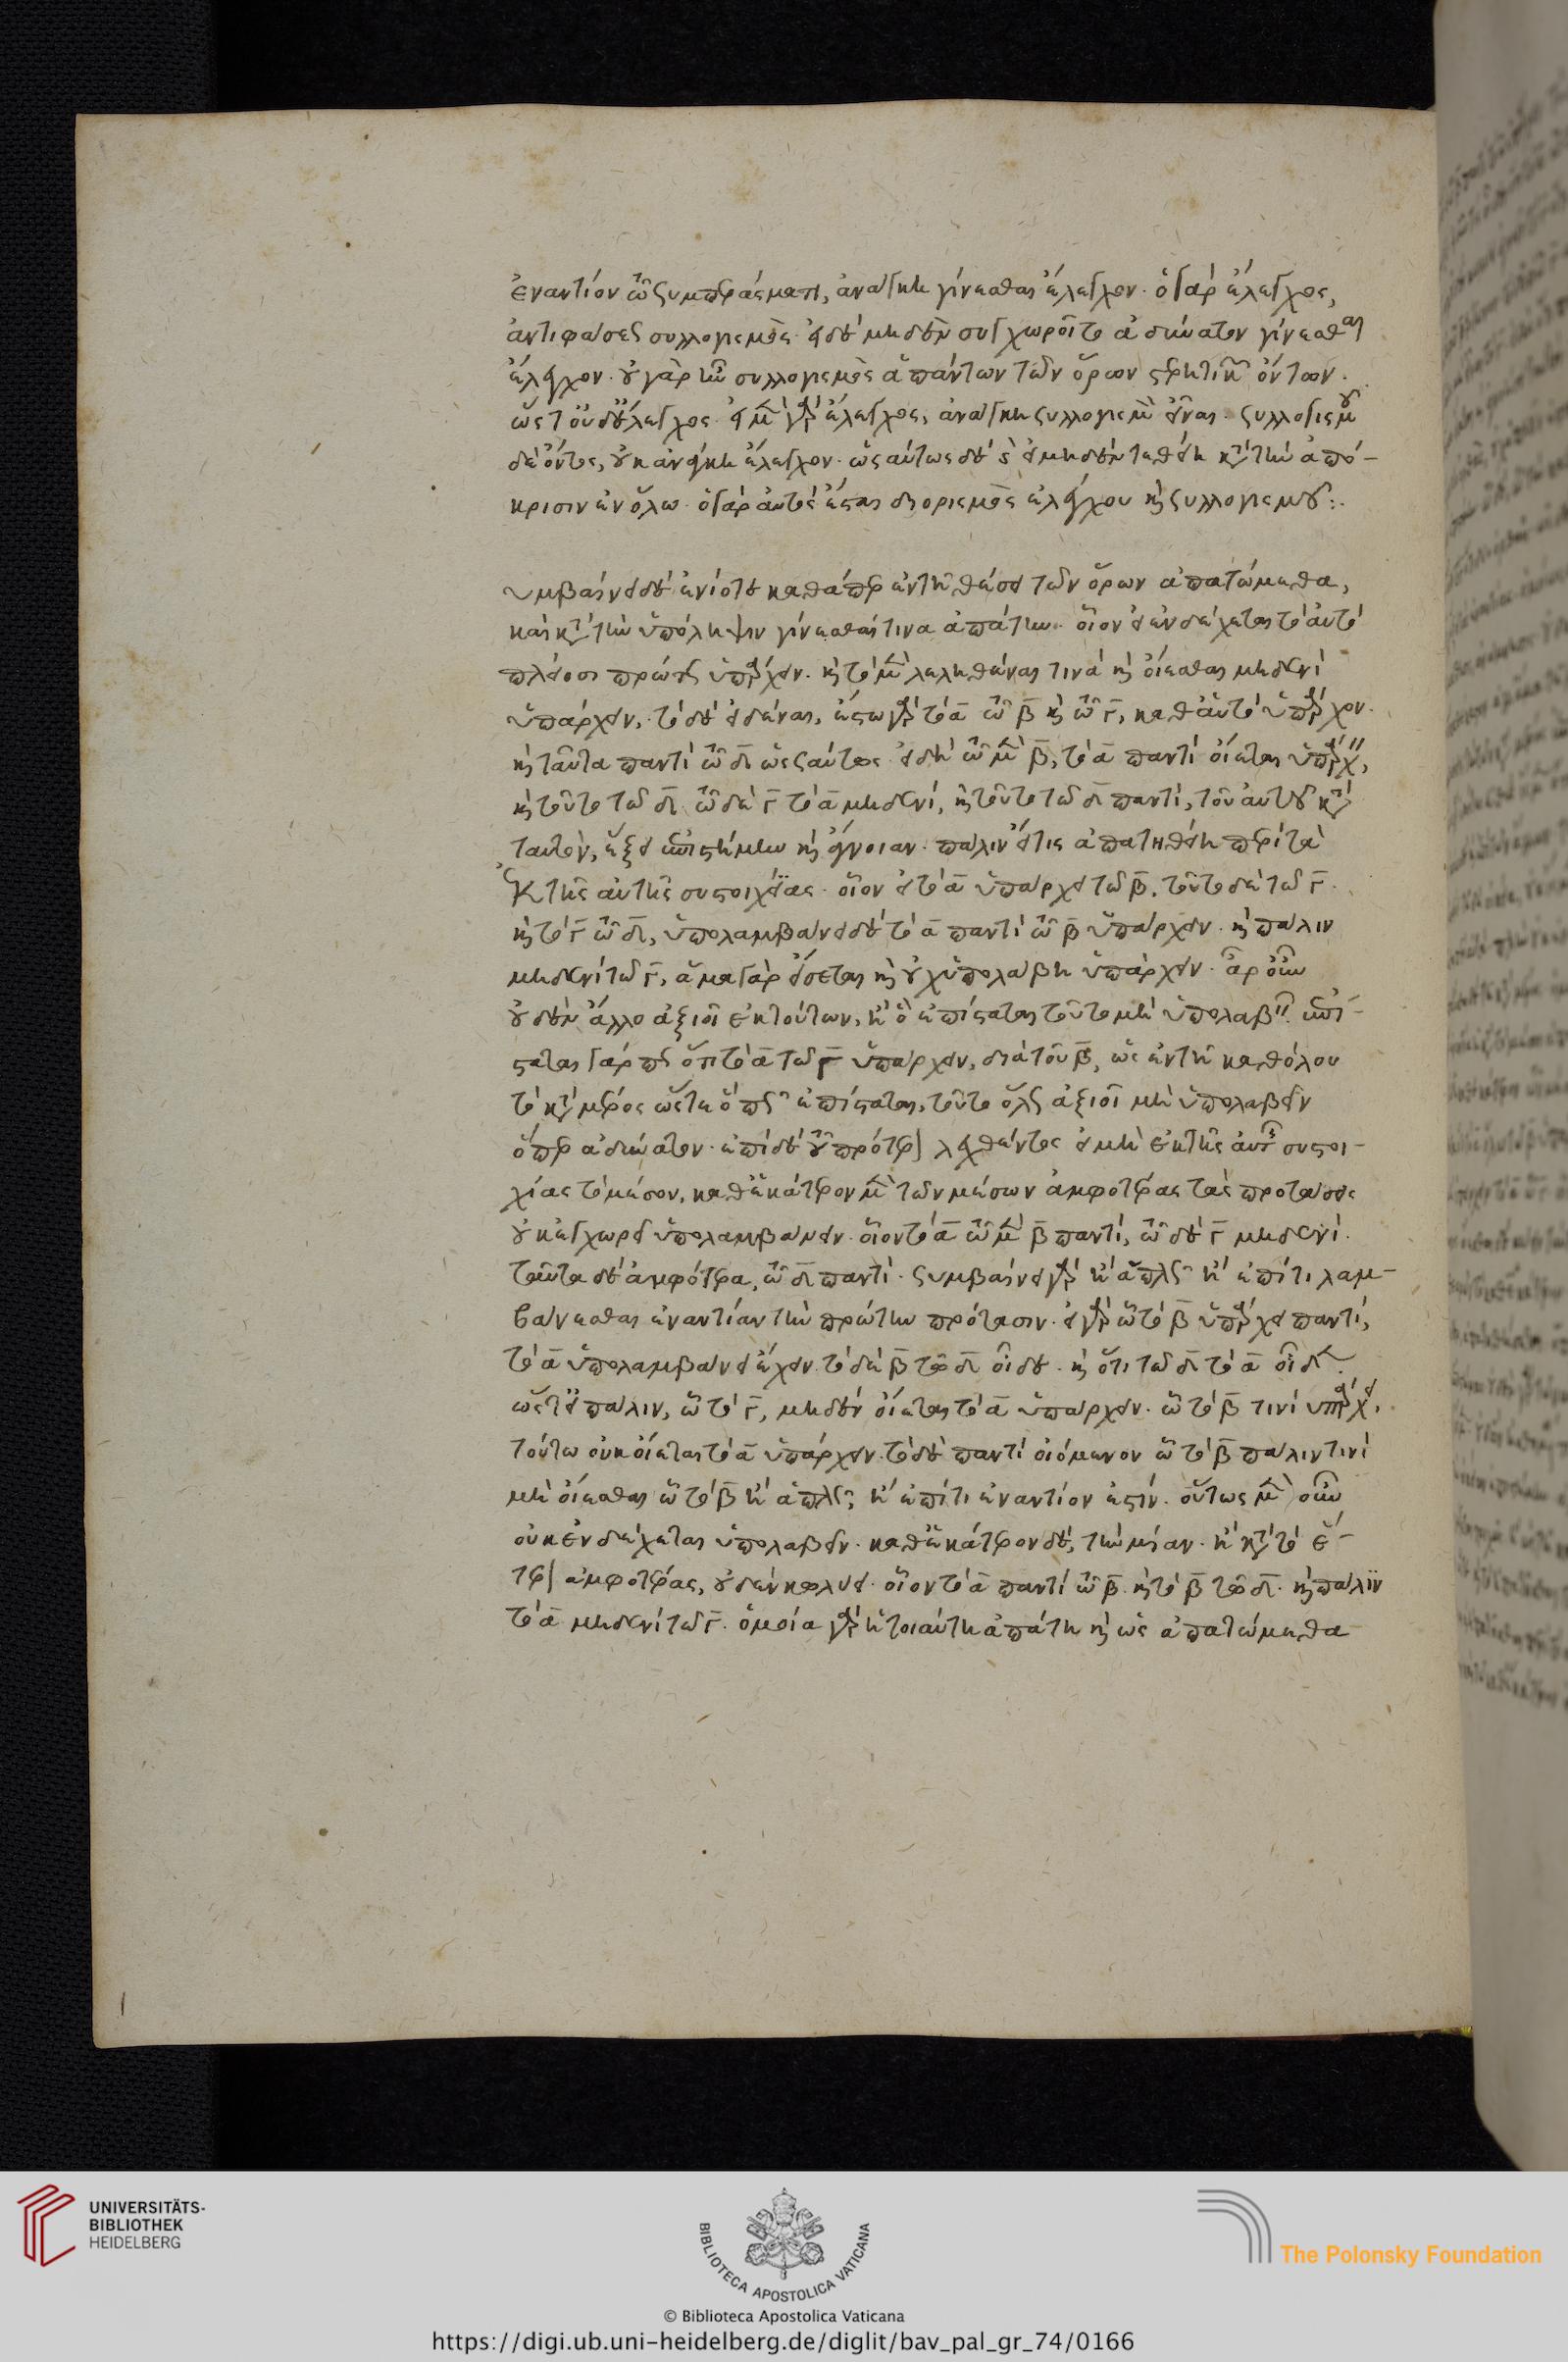 ἐναντίον τῶ συμπεράσματι, ἀνάγκη γίνεσθαι ἔλεγχον· ὁ γὰρ ἔλεγχος,
ἀντιφάσεως συλλογισμός· εἰ δὲ μηδὲν συγχωροῖτο ἀδύνατον γίνεσθαι
ἔλεγχον· οὐ γὰρ ἦν συλλογισμὸς ἁπάντων τῶν ὅρων στερητικῶν ὄντων·
ὥστ' οὐδ' ἔλεγχος· εἰ μὲν γὰρ ἔλεγχος, ἀνάγκη συλλογισμὸν εἶναι· συλλογισμοῦ
δὲ ὄντος, οὐκ ἀνάγκη ἔλεγχον· ὡσαύτως δὲ καὶ εἰ μηδὲν τεθείη κατὰ τὴν ἀπό-
κρισιν ἐν ὅλω· ὁ γὰρ αὐτὸς ἔσται διορισμὸς ἐλέγχου καὶ συλλογισμοῦ:.
υμβαίνει δ' ἐνίοτε καθάπερ ἐν τῆ θέσει τῶν ὅρων ἀπατώμεθα,
καὶ κατὰ τὴν ὑπόληψιν γίνεσθαί τινα ἀπάτην· οἷον εἰ ἐνδέχεται τὸ αὐτὸ
πλείοσι πρώτοις ὑπάρχειν· καὶ τὸ μὲν λεληθέναι τινὰ καὶ οἴεσθαι μηδενὶ
ὑπάρχειν, τὸ δὲ εἰδέναι, ἔστω γὰρ τὸ α τῶ β καὶ τῶ γ, καθ' αὑτὸ ὑπάρχον·
καὶ ταῦτα παντὶ τῶ δ ὡσαύτως· εἰ δὴ τῶ μὲν β, τὸ α παντὶ οἴεται ὑπάρχειν,
καὶ τοῦτο τῶ δ· τῶ δὲ γ τὸ α μηδενί, καὶ τοῦτο τῶ δ παντί, τοῦ αὐτοῦ κατὰ
ταυτόν, ἕξει ἐπιστήμην καὶ ἄγνοιαν· πάλιν εἴ τις ἀπατηθείη περὶ τὰ
ἐκ τῆς αὐτῆς συστοιχίας· οἷον εἰ τὸ α ὑπάρχει τῶ β, τοῦτο δὲ τῶ γ·
καὶ τὸ γ τῶ δ, ὑπολαμβάνει δὲ τὸ α παντὶ τῶ β ὑπάρχειν· καὶ πάλιν
μηδενὶ τῶ γ, ἅμα γὰρ εἴσεται καὶ οὐχ ὑπολάβη ὑπάρχειν· ἆρ' οὖν
οὐδὲν ἄλλο ἀξιοῖ ἐκ τούτων, ἢ ὃ ἐπίσταται τοῦτο μὴ ὑπολαβεῖν· ἐπί-
σταται γάρ πως ὅτι τὸ α τῶ γ ὑπάρχειν, διὰ τοῦ β, ὡς ἐν τῆ καθόλου
τὸ κατὰ μέρος ὥστε ὅ πως ἐπίσταται, τοῦτο ὅλως ἀξιοῖ μὴ ὑπολαβεῖν
ὅπερ ἀδύνατον· ἐπὶ δὲ τοῦ πρότερον λεχθέντος εἰ μὴ ἐκ τῆς αὐτῆς συστοι-
χίας τὸ μέσον, καθ' ἑκάτερον μὲν τῶν μέσων ἀμφοτέρας τὰς προτάσεις
οὐκ ἐγχωρεῖ ὑπολαμβάνειν· οἷον τὸ α τῶ μὲν β παντί, τῶ δὲ γ μηδενί·
ταῦτα δ' ἀμφότερα, τῶ δ παντὶ· συμβαίνει γὰρ ἢ ἁπλῶς ἢ ἐπί τι λαμ-
βάνεσθαι ἐναντίαν τὴν πρώτην πρότασιν· εἰ γὰρ ὧ τὸ β ὑπάρχει παντί,
τὸ α ὑπολαμβάνει ἔχειν· τὸ δὲ β τῶ δ οἶδε· καὶ ὅτι τῶ δ τὸ α οἶδεν·
ὥστ' εἰ πάλιν, ὧ τὸ γ, μηδὲν οἴεται τὸ α ὑπάρχειν· ὧ τὸ β τινὶ ὑπάρχει,
τούτω οὐκ οἴεται τὸ α ὑπάρχειν· τὸ δὲ παντὶ οἰόμενον ὧ τὸ β πάλιν τινὶ
μὴ οἴεσθαι ὧ τὸ β ἢ ἁπλῶς, ἢ ἐπί τι ἐναντίον ἐστίν· οὕτως μὲν οὖν
οὐκ ἐνδέχεται ὑπολαβεῖν· καθ' ἑκάτερον δὲ, τὴν μίαν· ἢ κατὰ τὸ ἕ-
τερον ἀμφοτέρας, οὐδὲν κωλύει· οἷον τὸ α παντὶ τῶ β· καὶ τὸ β τῶ δ· καὶ πάλιν
τὸ α μηδενὶ τῶ γ· ὁμοία γὰρ ἡ τοιαύτη ἀπάτη καὶ ὡς ἀπατώμεθα
UNIVERSITÄTS-
BIBLIOTHEK
HEIDELBERG
BIBLIOTECA APOSTOLICA VATICANA
The Polonsky Foundation
© Biblioteca Apostolica Vaticana
https://digi.ub.uni-heidelberg.de/diglit/bav_pal_gr_74/0166